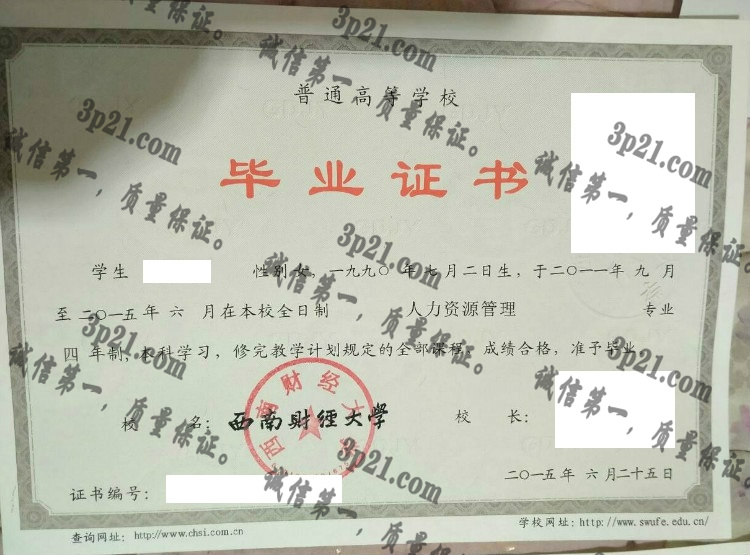 普通高等学校
毕业证书
学生 性别女，一九九〇年七月二日生，于二〇一一年九月
至二〇一五年六月在本校全日制 人力资源管理 专业
四年制，本科学习，修完教学计划规定的全部课程，成绩合格，准予毕业。
校 名：西南财经大学 校 长：
西南财经大学
二〇一五年六月二十五日
证书编号：
查询网址：http://www.chsi.com.cn
学校网址：http://www.swufe.edu.cn/
3p21.com
诚信第一，质量保证。
3p21.com
诚信第一，质量保证。
3p21.com
诚信第一，质量保证。
3p21.com
诚信第一，质量保证。
3p21.com
诚信第一，质量保证。
3p21.com
诚信第一，质量保证。
3p21.com
诚信第一，质量保证。
3p21.com
诚信第一，质量保证。
3p21.com
诚信第一，质量保证。